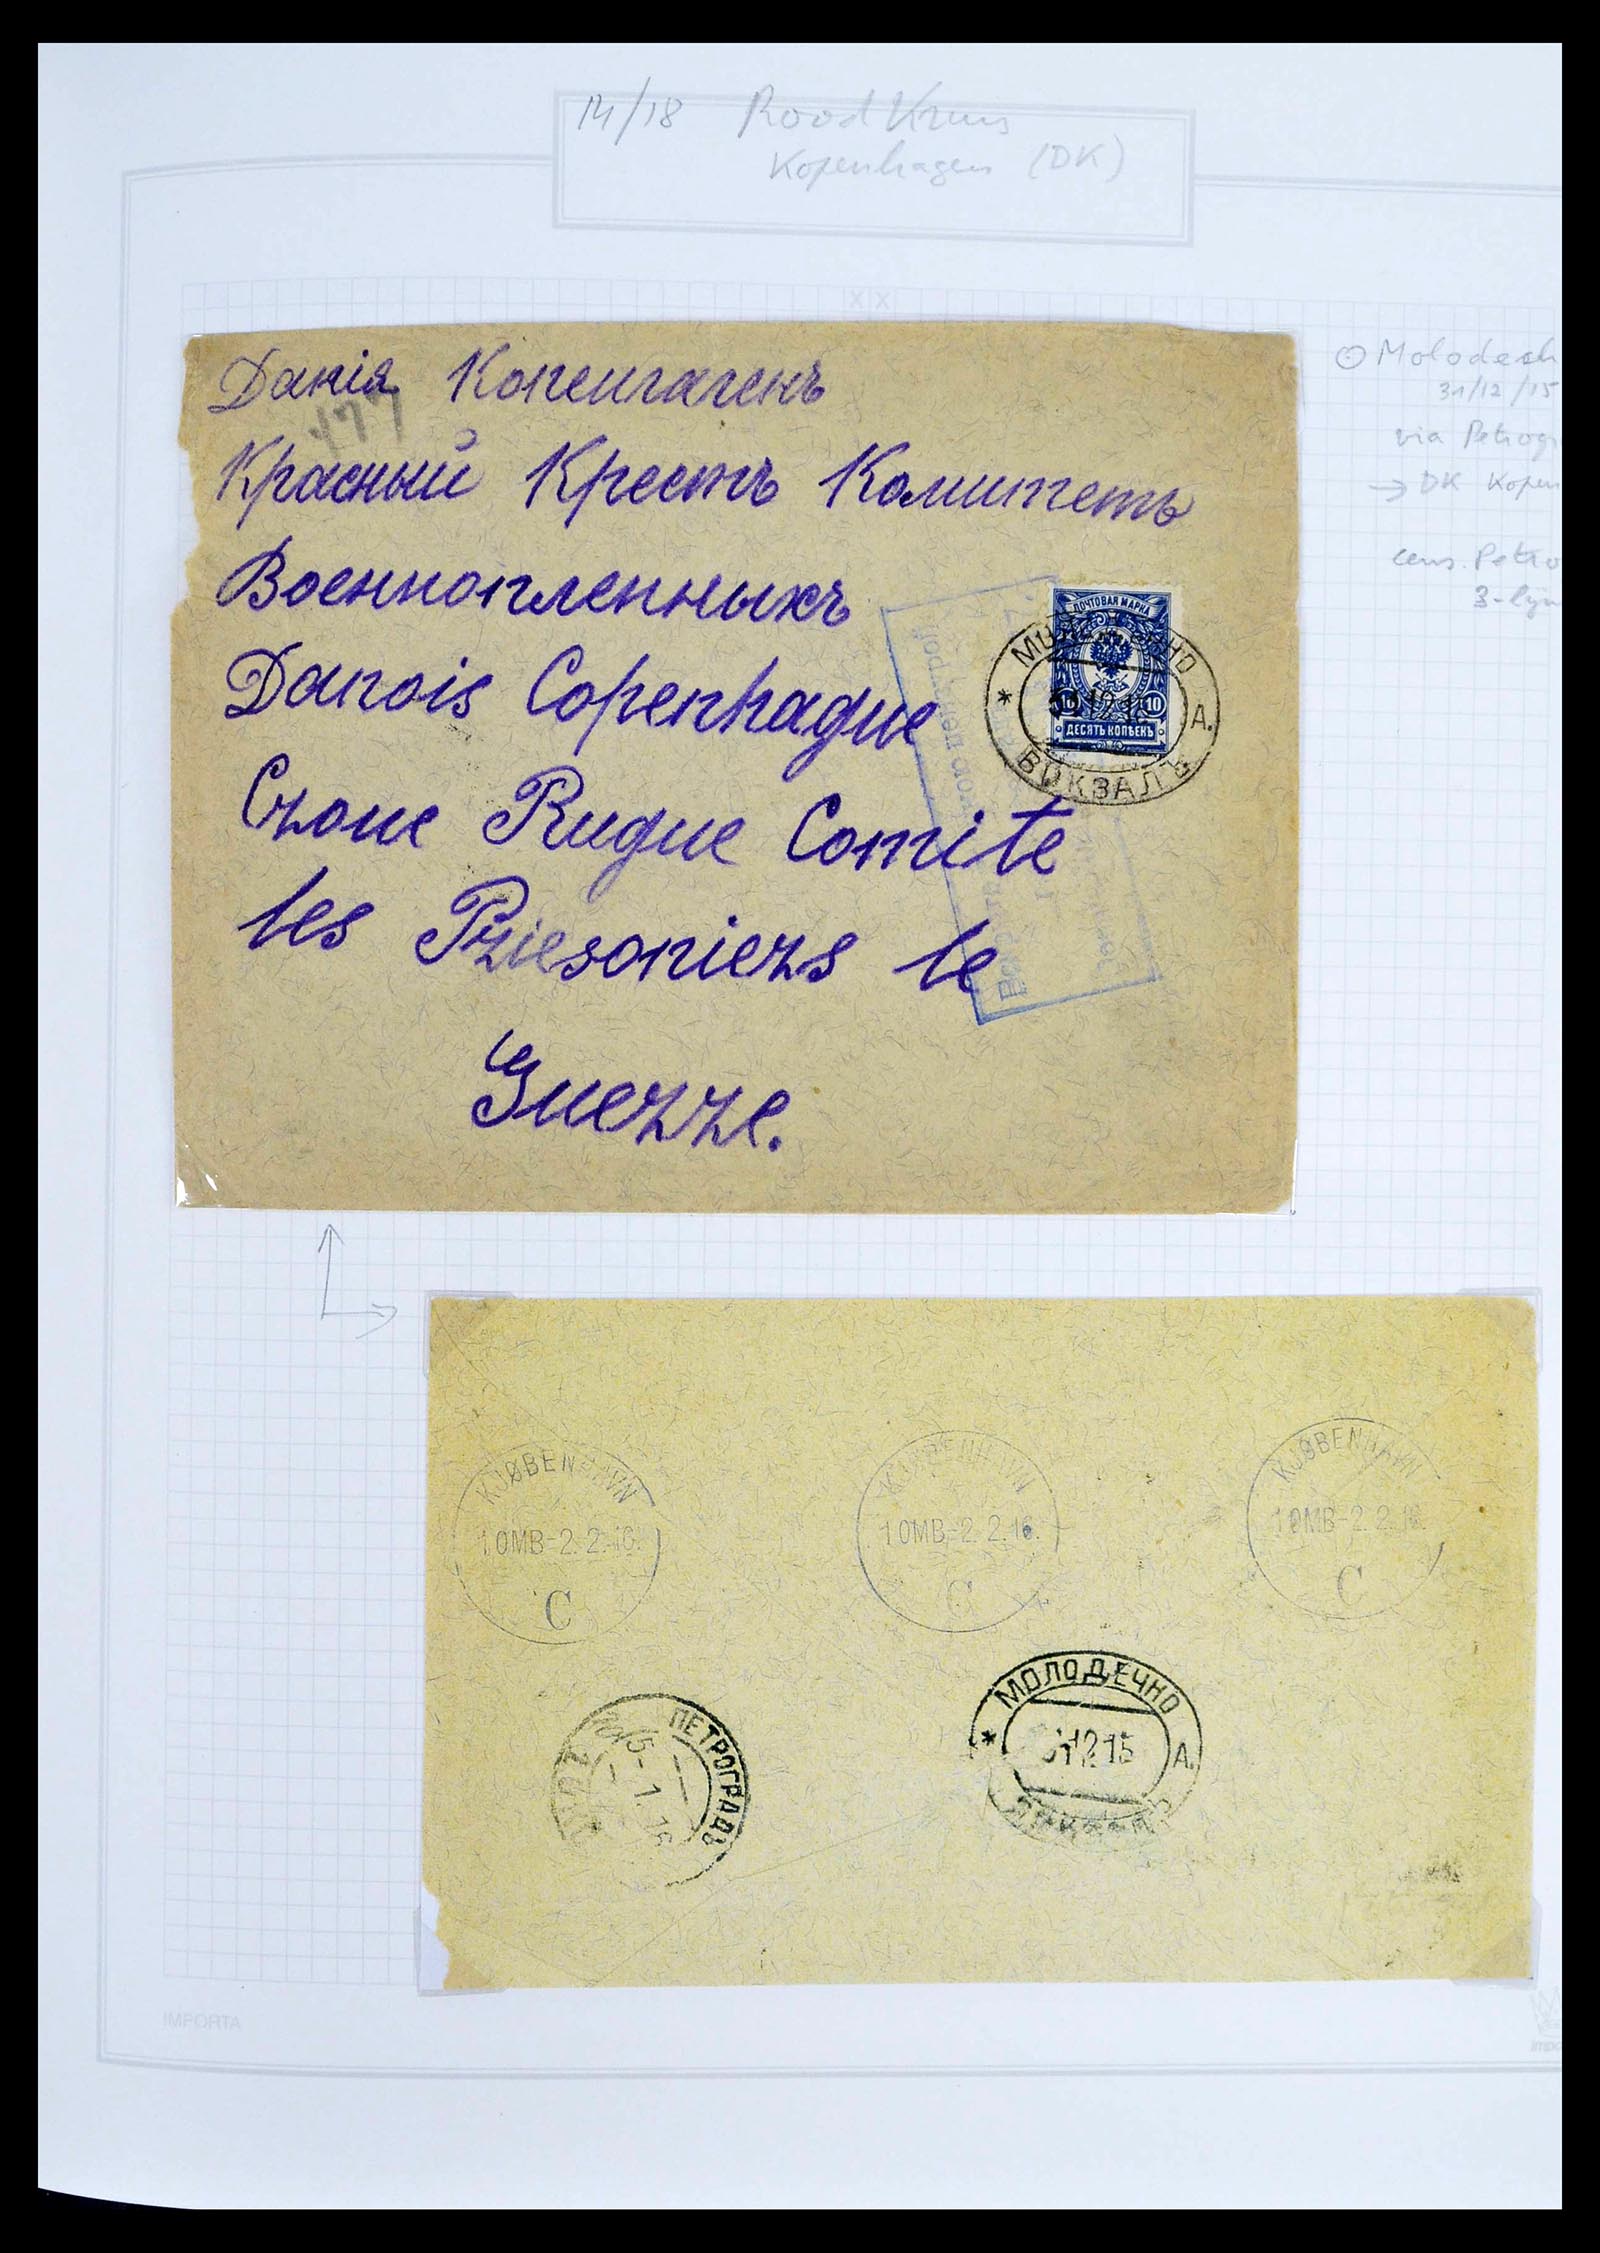 14/18 Rood Kruis
Kopenhagen (DK)
X X
Данія Копенгагенъ
177
Красный Крестъ Комитетъ
Военнопленныхъ
Danois Copenhague
Croue Rugue Comite
les Priesoniers le
Guerre.
ПОЧТОВАЯ МАРКА
10 10
ДЕСЯТЬ КОПѢЕКЪ
МОЛОДЕЧНО
* 31.12.15 А.
ВОКЗАЛЪ
⊙ Molodesh
31/12/15
via Petrogr
→ DK Kopen
cens. Petro
3-lijn
KJØBENHAVN
10MB-2.2.16.
C
KJØBENHAVN
10MB-2.2.16.
C
KJØBENHAVN
10MB-2.2.16.
C
ПЕТРОГРАДЪ
5-1.16
МОЛОДЕЧНО
* 31.12.15 А.
ВОКЗАЛЪ
IMPORTA